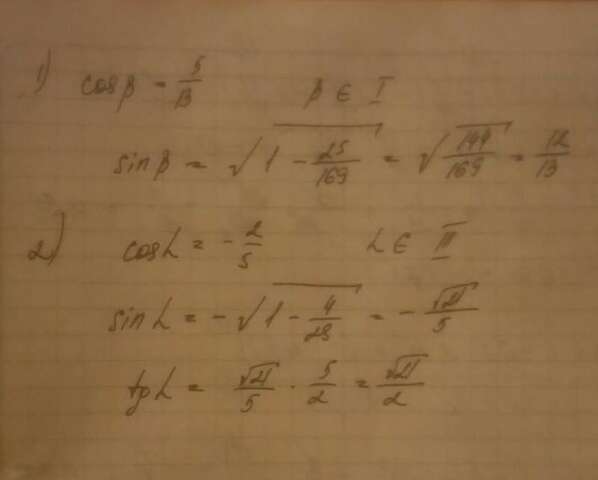 1) cosβ = 5/13 β ∈ I
sinβ = √(1 - 25/169) = √(144/169) = 12/13
2) cosα = - 2/5 α ∈ III
sinα = -√(1 - 4/25) = - √21/5
tgα = √21/5 · 5/2 = √21/2